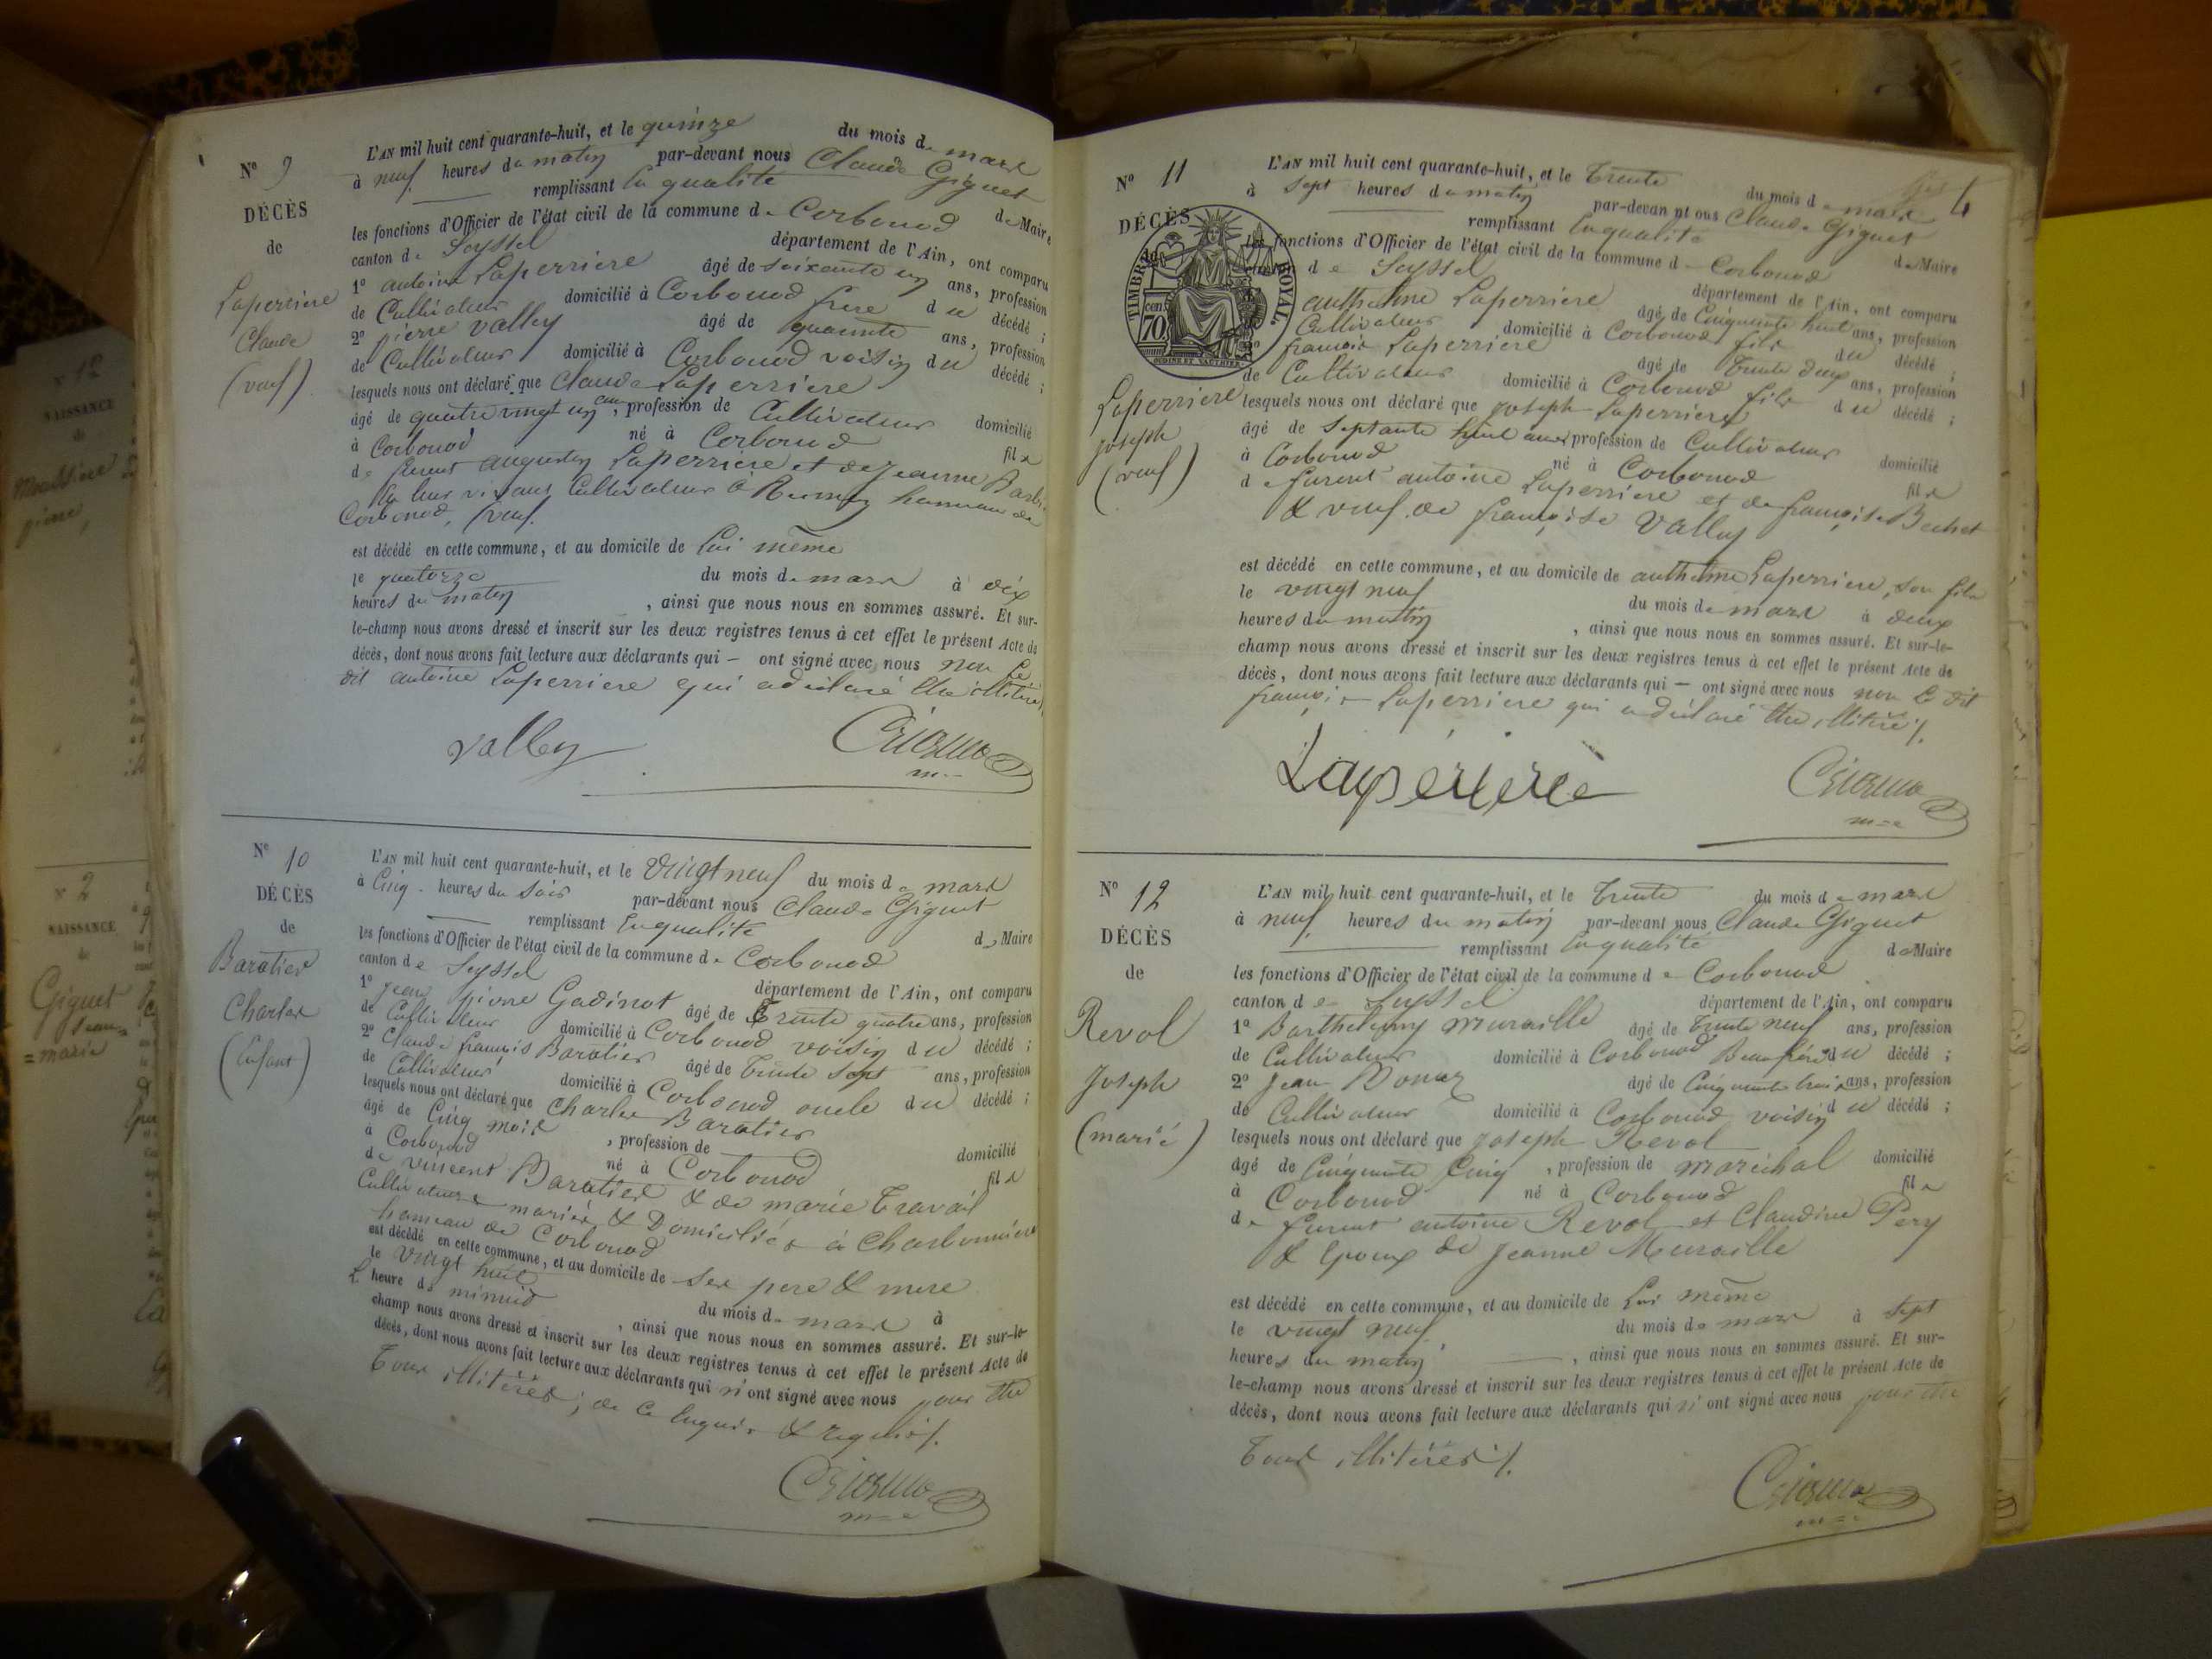 N° 9
DÉCÈS
de
Laperriere
Claude
(veuf)
L'AN mil huit cent quarante-huit, et le quinze du mois de mars
à neuf heures du matin par-devant nous Claude Giguet
remplissant en qualité de Maire
les fonctions d'Officier de l'état civil de la commune de Corbonod
canton de Seyssel département de l'Ain, ont comparu
1° antoine Laperriere âgé de soixante un ans, profession
de Cultivateur domicilié à Corbonod frere du décédé ;
2° pierre Valley âgé de quarante ans, profession
de Cultivateur domicilié à Corbonod voisin du décédé ;
lesquels nous ont déclaré que Claude Laperriere
âgé de quatre vingt un ans, profession de Cultivateur domicilié
à Corbonod né à Corbonod fils
de furent augustin Laperriere et de Jeanne
de leur vivant Cultivateurs à hameau de
Corbonod, veuf.
est décédé en cette commune, et au domicile de lui même
le quatorze du mois de mars à dix
heures du matin, ainsi que nous nous en sommes assuré. Et sur-
le-champ nous avons dressé et inscrit sur les deux registres tenus à cet effet le présent Acte de
décès, dont nous avons fait lecture aux déclarants qui – ont signé avec nous non le
dit antoine Laperriere qui a déclaré être illitéré
Valley
N° 10
DÉCÈS
de
Baratier
Charles
(enfant)
L'AN mil huit cent quarante-huit, et le vingt neuf du mois de mars
à Cinq heures du soir par-devant nous Claude Giguet
remplissant en qualité de Maire
les fonctions d'Officier de l'état civil de la commune de Corbonod
canton de Seyssel département de l'Ain, ont comparu
1° jean pierre Gadinot âgé de Trente quatre ans, profession
de Cultivateur domicilié à Corbonod voisin du décédé ;
2° Claude françois Baratier âgé de Trente sept ans, profession
de Cultivateur domicilié à Corbonod oncle du décédé ;
lesquels nous ont déclaré que Charles Baratier
âgé de Cinq mois, profession de domicilié
à Corbonod né à Corbonod fils
de vincent Baratier & de marie Travail
Cultivateurs mariés & Domiciliés à Charbonnière
hameau de Corbonod
est décédé en cette commune, et au domicile de ses pere & mere
le vingt huit du mois de mars à
L'heure de minuit, ainsi que nous nous en sommes assuré. Et sur-le-
champ nous avons dressé et inscrit sur les deux registres tenus à cet effet le présent Acte de
décès, dont nous avons fait lecture aux déclarants qui n'ont signé avec nous pour être
Tous illitérés ; de ce enquis & requis /.
N° 11
4
DÉCÈS
TIMBRE ROYAL.
70 cen.
OUDINE ET VAUTHIER
Laperriere
joseph
(veuf)
L'AN mil huit cent quarante-huit, et le Trente du mois de mars
à sept heures du matin par-devan nt ous Claude Giguet
remplissant en qualité de Maire
les fonctions d'Officier de l'état civil de la commune de Corbonod
canton de Seyssel département de l'Ain, ont comparu
anthelme Laperriere âgé de Cinquante huit ans, profession
Cultivateur domicilié à Corbonod fils du décédé ;
2° françois Laperriere âgé de Trente deux ans, profession
de Cultivateur domicilié à Corbonod fils du décédé ;
lesquels nous ont déclaré que joseph Laperriere
âgé de Septante huit ans profession de Cultivateur domicilié
à Corbonod né à Corbonod fils
de furent antoine Laperriere et de françoise Bechet
& veuf de françoise Valley
est décédé en cette commune, et au domicile de anthelme Laperriere, son fils
le vingt neuf du mois de mars à deux
heures du matin, ainsi que nous nous en sommes assuré. Et sur-le-
champ nous avons dressé et inscrit sur les deux registres tenus à cet effet le présent Acte de
décès, dont nous avons fait lecture aux déclarants qui — ont signé avec nous non le dit
françois Laperriere qui a déclaré être illitéré /.
Laperierè
N° 12
DÉCÈS
de
Revol
Joseph
(marié)
L'AN mil huit cent quarante-huit, et le Trente du mois de mars
à neuf heures du matin par-devant nous Claude Giguet
remplissant en qualité de Maire
les fonctions d'Officier de l'état civil de la commune de Corbonod
canton de Seyssel département de l'Ain, ont comparu
1° Barthelemy Muraille âgé de Trente neuf ans, profession
de Cultivateur domicilié à Corbonod Beaufrère du décédé ;
2° Jean âgé de Cinquante trois ans, profession
de Cultivateur domicilié à Corbonod voisin du décédé ;
lesquels nous ont déclaré que joseph Revol
âgé de Cinquante Cinq, profession de maréchal domicilié
à Corbonod né à Corbonod fils
de furent antoine Revol et Claudine Pery
& Epoux de Jeanne Muraille
est décédé en cette commune, et au domicile de lui même
le vingt neuf du mois de mars à sept
heures du matin, ainsi que nous nous en sommes assuré. Et sur-
le-champ nous avons dressé et inscrit sur les deux registres tenus à cet effet le présent Acte de
décès, dont nous avons fait lecture aux déclarants qui n'ont signé avec nous pour être
Tous illitérés /.
N° 12
NAISSANCE
de
pierre
N° 2
NAISSANCE
de
Giguet
jean=
=marie